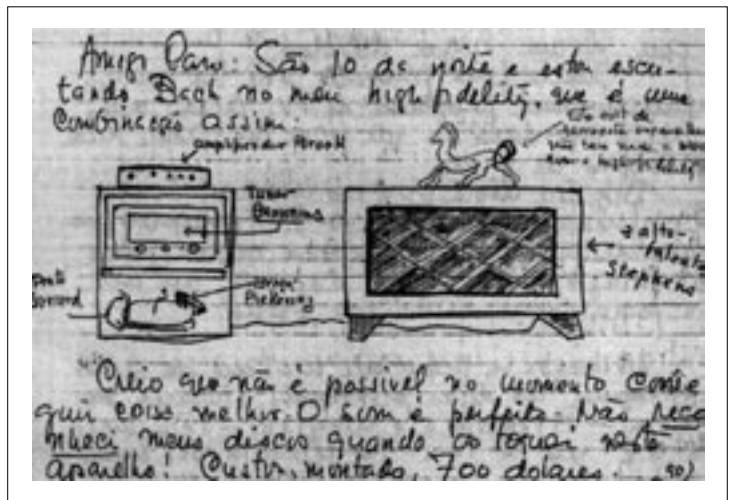 Amigo Caro: São 10 da noite e estou escu-
tando Bach no meu high fidelity, que é uma
Combinação assim:
amplificador Brook
Tuner
Browning
Pickering
2 alto-
falantes
Stephens
Creio que não é possivel no momento conse
guir coisa melhor. O som é perfeito. Não reco
nheci meus discos quando os toquei neste
aparelho! Custou, montado, 700 dolares.